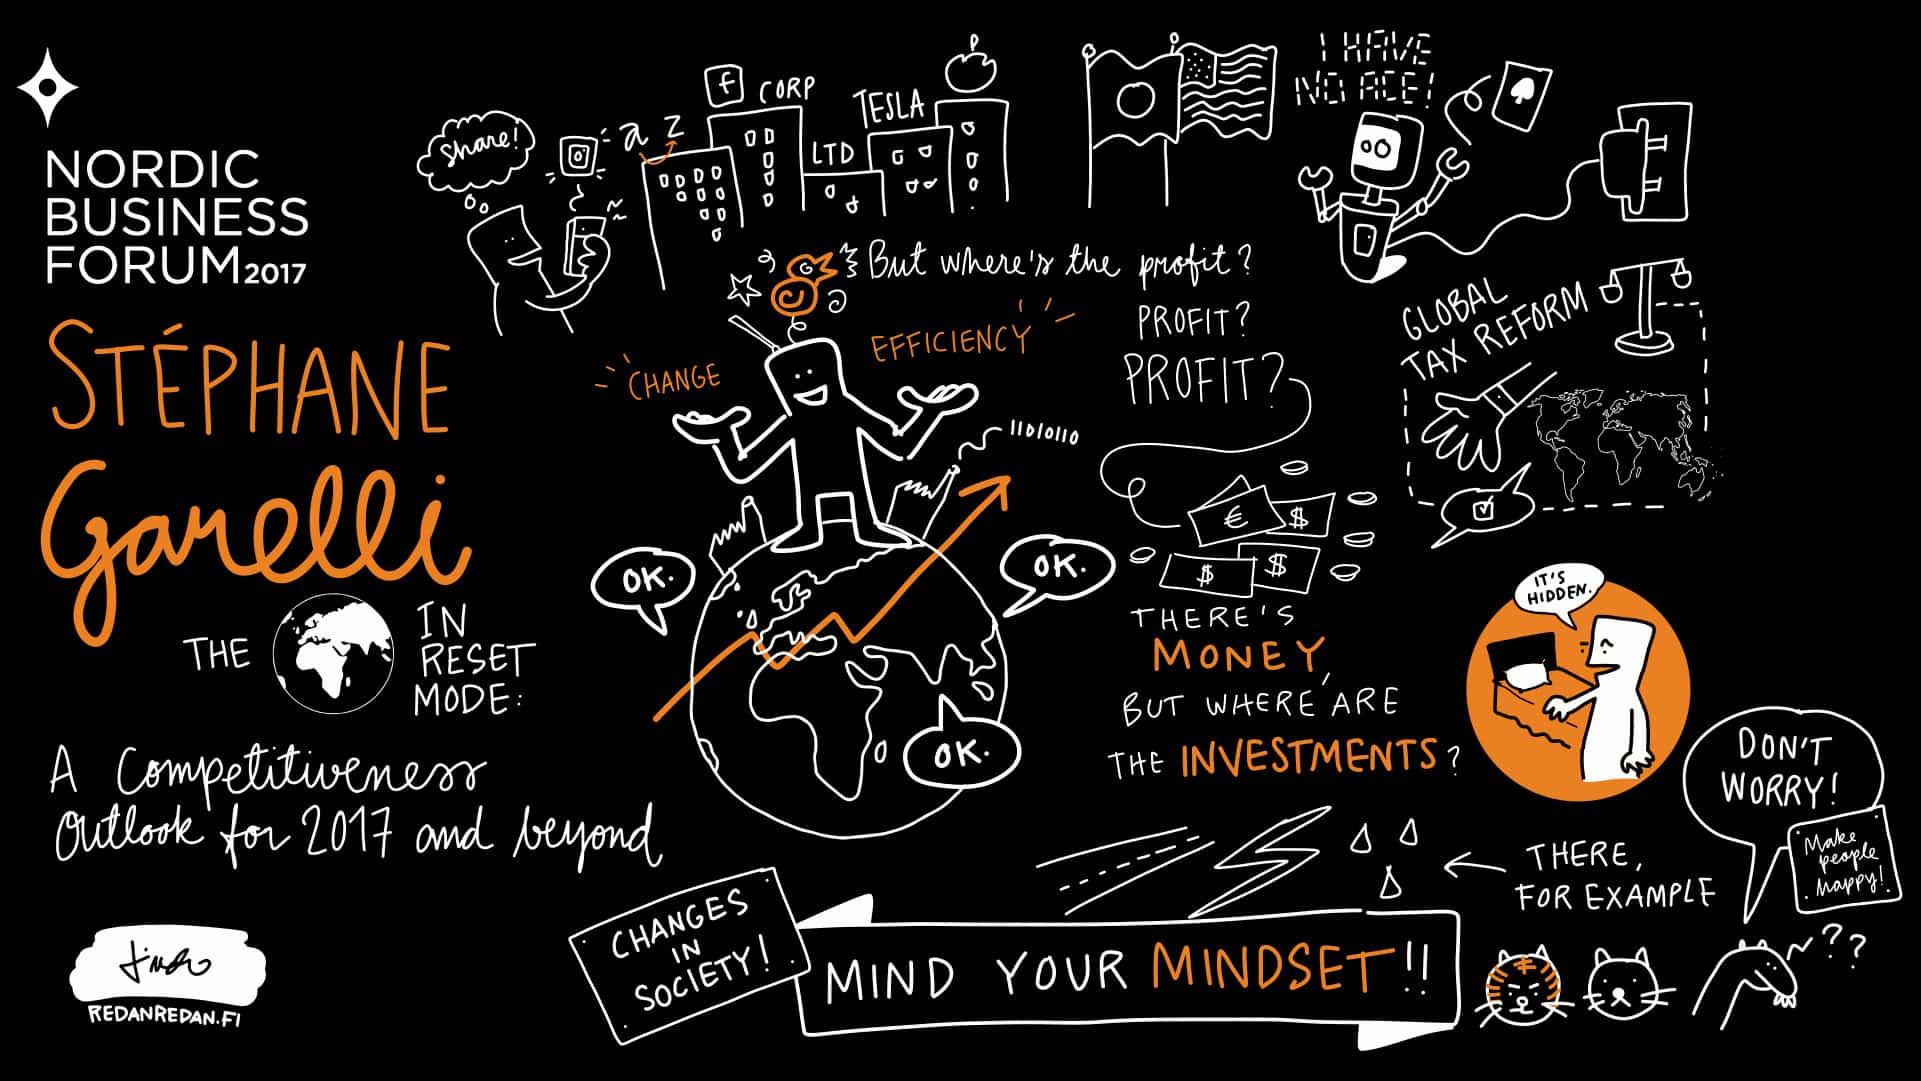 NORDIC
BUSINESS
FORUM2017
STÉPHANE
Garelli
THE
IN
RESET
MODE:
A Competitiveness
Outlook for 2017 and beyond
REDANREDAN.FI
Share!
a z
f CORP
LTD
TESLA
I HAVE
NO ACE!
But where's the profit?
PROFIT?
PROFIT?
CHANGE
EFFICIENCY
11010110
GLOBAL
TAX REFORM
€ $
$ $
OK.
OK.
OK.
THERE'S
MONEY,
BUT WHERE ARE
THE INVESTMENTS?
IT'S
HIDDEN.
THERE,
FOR EXAMPLE
DON'T
WORRY!
Make
people
happy!
??
CHANGES
IN
SOCIETY!
MIND YOUR MINDSET!!